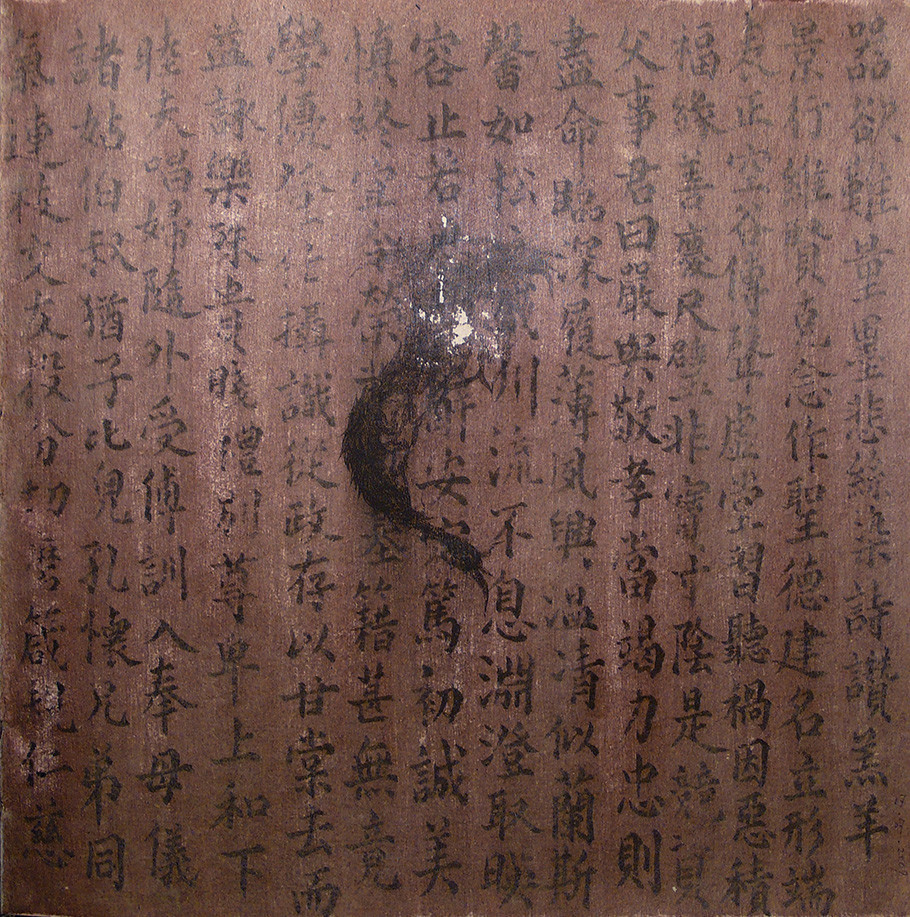 器欲難量墨悲絲染詩讚羔羊
景行維賢克念作聖德建名立形端
表正空谷傳聲虛堂習聽禍因惡積
福緣善慶尺璧非寶寸陰是競資
父事君曰嚴與敬孝當竭力忠則
盡命臨深履薄夙興溫清似蘭斯
馨如松盛川流不息淵澄取暎
容止若辭安定篤初誠美
慎終宜令榮基籍甚無竟
學優登仕攝職從政存以甘棠去而
益詠樂殊貴賤禮別尊卑上和下
睦夫唱婦隨外受傅訓入奉母儀
諸姑伯叔猶子比兒孔懷兄弟同
氣連枝交友投分切磨箴規仁慈